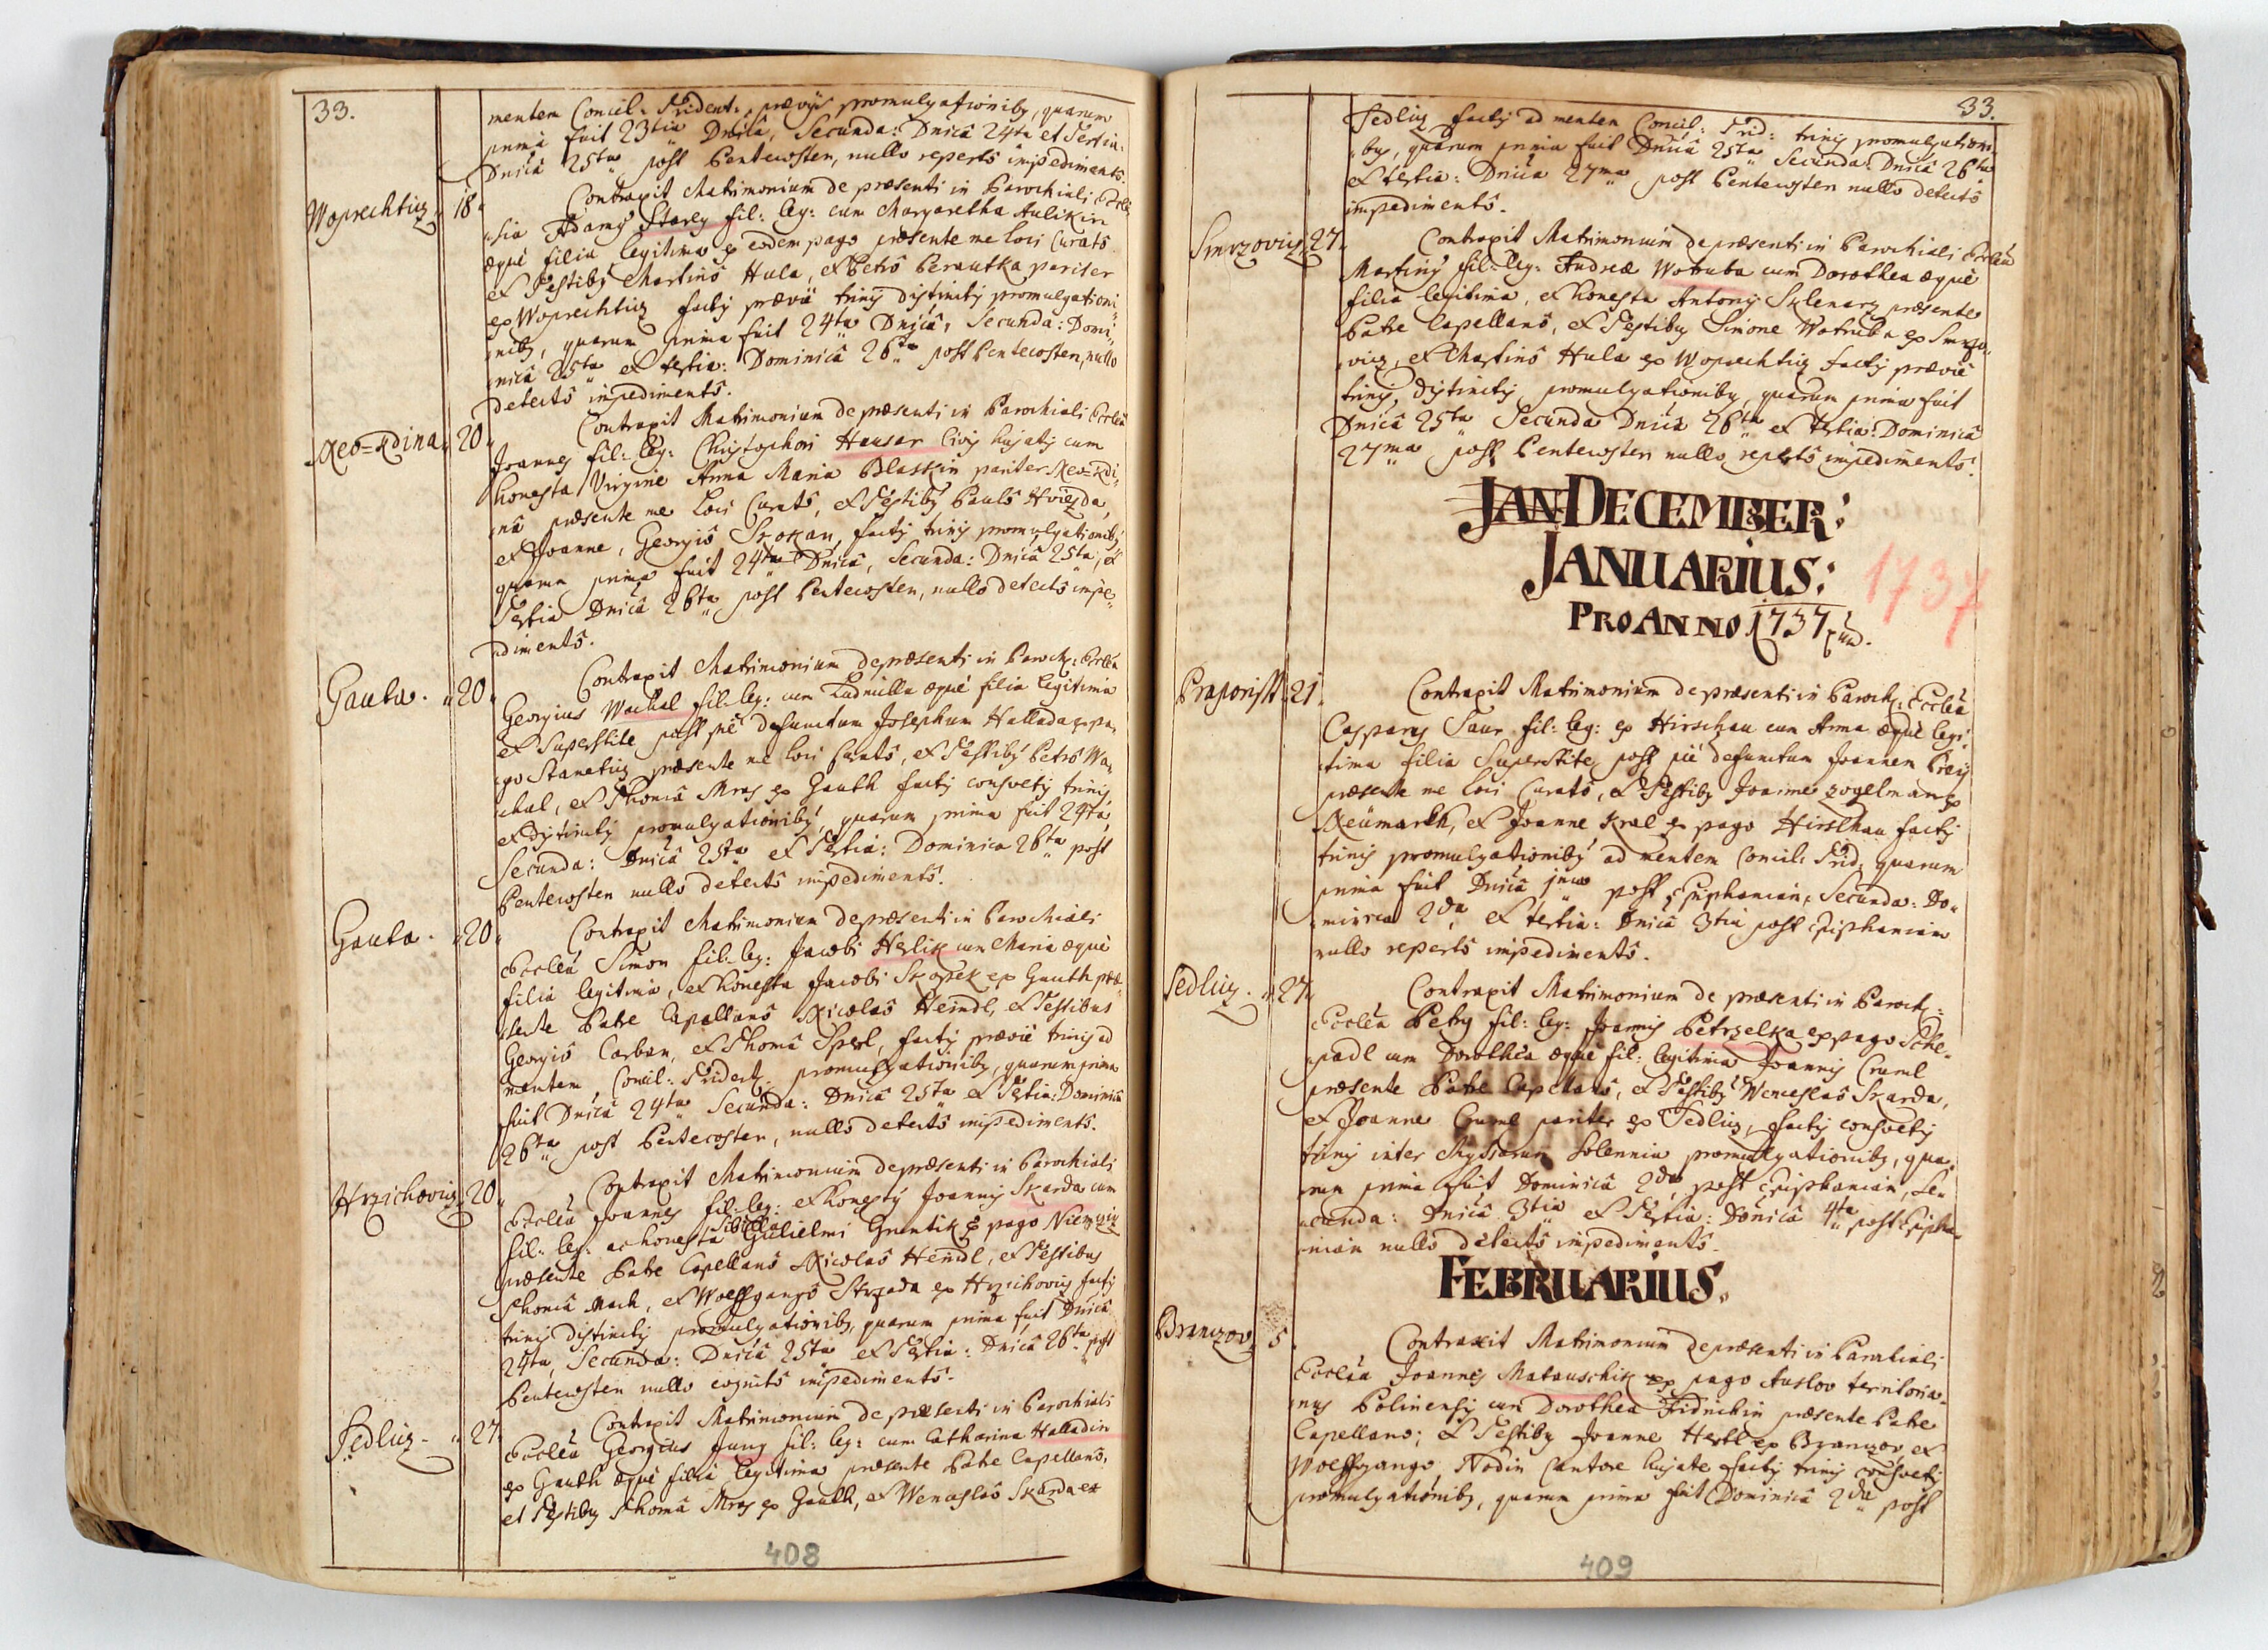 33.
mentem Concil: Trident: prævijs promulgationibg, quarum
prima fuit 23tia Dnicâ, Secunda: Dnicâ 24ta et Tertia:
Dnicâ 25ta post Pentecosten, nullo repertô impedimentô.
Woprechtiz 18 Contraxit Matrimonium de præsenti in Parochiali Eccle
sia Adamg Starey fil: leg: cum Margaretha Aulikin
æquè filia legitima ex eodem pago præsente me loci Curatô
et Testibg Martinô Hula, et Petrô Berautka pariter
ex Woprechtiz factg præviè trinis distinctis promulgationi
nibg, quarum prima fuit 24ta Dnicâ, Secunda: Domi
nicâ 25ta et tertia: Dominicâ 26ta post Pentecosten, nullo
detectô impedimentô.
Neo=Kdina 20 Contraxit Matrimonium de præsenti in Parochiali Eccleâ
Joannes fil: leg: Christophori Hausar Civis hujatis cum
honesta Virgine Anna Maria Blaskin pariter Neo=Kdi
nâ præsente me loci Curatô, et Testibg Paulô Hviezda,
et Joanne, Georgiô Skokan, factis trinis promulgationibg
quarum prima fuit 24ta Dnicâ, Secunda: Dnicâ 25ta, et
Tertia Dnicâ 26ta post Pentecosten, nullô detectô impe
dimentô.
Gauta 20 Contraxit Matrimonium de præsenti in Paroch: Eccleâ
Georgius Wachal fil: leg: cum Ludmilla æquè filia legitimâ
et Superstite post piè defunctum Josephum Hallada ex pa
go Stanetiz præsente me loci Curatô, et Testibg Petrô Wa
chal, et Thomâ Mras ex Gauth factis consvetis trinis
et distinctis promulgationibg, quarum prima fuit 24ta,
Secunda: Dnicâ 25ta et Tertia: Dominica 26ta post
Pentecosten nullô detectô impedimentô.
Gauta 20 Contraxit Matrimonium de præsenti in Parochiali
Eccleâ Simon fil: leg: Jacobi Herlik cum Maria æquè
filia legitima, et honesta Jacobi Skopek ex Gauth præ
sente Patre Capellanô Nicolaô Heindl, et Testibus
Georgiô Carban, et Thomâ Sperl, factis præviè trinis ad
mentem Concil: Trident: promulgationibg, quarum prima
fuit Dnicâ 24ta Secunda: Dnicâ 25ta et Tertia: Dominicâ
26ta post Pentecosten, nullô detectô impedimentô.
Hrzichoviz 20 Contraxit Matrimonium de præsenti in Parochiali
Eccleâ Joannes fil: leg: et honestg Joannis Skarda cum
Sibilla
fil: leg: ac honesta Gulielmi Gruntik è pago Niemziz
præsente Patre Capellanô Nicolaô Heindl, et Testibus
Thomâ Mach, et Wolffgangô Strzada ex Hrzichoviz factis
trinis distinctis promulgationibg, quarum prima fuit Dnicâ
24ta, Secunda: Dnicâ 25ta et Tertia: Dnicâ 26ta post
Pentecosten nullo cognitô impedimentô.
Sedliz 27 Contraxit Matrimonium de præsenti in Parochiali
Eccleâ Georgius Jung fil: leg: cum Catharina Halladin
ex Gauth æquè filia legitima præsente Patre Capellanô,
et Testibg Thomâ Mras ex Gauth, et Wenceslaô Skarda ex
408
33.
Sedliz factis ad mentem Concil: Trid: trinis promulgationi
bus, quarum prima fuit Dnicâ 25ta Secunda: Dnicâ 26ta
et tertia: Dnicâ 27ma post Pentecosten nullo detectô
impedimentô.
Smrzoviz 27 Contraxit Matrimonium de præsenti in Parochiali Eccleâ
Marting fil: leg: Andreæ Wotruba cum Dorothea æquè
filia legitima, et honesta Antonij Sklenarz præsente
Patre Capellanô, et Testibg Simone Wotruba ex Smrzo
viz, et Martinô Hula ex Woprechtiz factis præviè
trinis, distinctis promulgationibg, quarum prima fuit
Dnicâ 25ta Secunda Dnicâ 26ta et tertia: Dominicâ
27ma post Pentecosten nullo repertô impedimentô.
JAN DECEMBER:
JANUARIUS:
1737
PRO ANNO 1737
Praporist 21 Contraxit Matrimonium de præsenti in Paroch: Eccleâ
Casparg Saur fil: leg: ex Hirschau cum Anna æquè legi
tima filia Superstite post piè defunctum Joannem
præsente me loci Curatô, et Testibg Joanne Zogelman ex
Neümarkh, et Joanne Kral ex pago Hirschau factis
trinis promulgationibg ad mentem Concil: Trid: quarum
prima fuit Dnicâ 1ma post Epiphaniam, Secunda: Do
minica 2da et tertia: Dnicâ 3tia post Epiphaniam
nullo repertô impedimentô.
Sedliz 27 Contraxit Matrimonium de præsenti in Paroch:
Eccleâ Petrg fil: leg: Joannis Petrzelka ex pago Sche
padl cum Dorothea æquè fil: legitima Joannis Cruml
præsente Patre Capellanô, et Testibg Wenceslaô Skarda,
et Joanne Cruml pariter ex Sedliz, factis consvetis
trinis inter Missarum Solennia promulgationibg, qua
rum prima fuit Dominicâ 2da post Epiphaniam, Se
cunda: Dnicâ 3tia et Tertia: Donicâ 4ta post Epipha
niam nullo detectô impedimentô.
FEBRUARIUS.
Branzov 5 Contraxit Matrimonium de præsenti in Parochiali
Eccleâ Joannes Matauschik ex pago Auslov territoria
nus Polinensis cum Dorothea Fidrichin præsente Patre
Capellano; et Testibg Joanne Hertl ex Branzov, et
Wolffgango Nodin Cantore hujate factis trinis consvetis
promulgationibg, quarum prima fuit Dominicâ 2da post
409